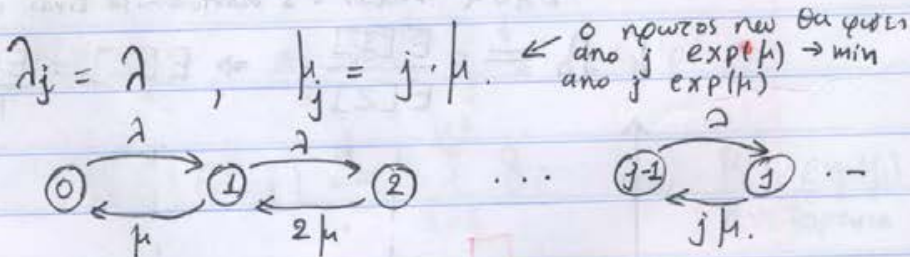 λj = λ , μj = j·μ. ← ο πρώτος που θα φύγει
από j exp(μ) → min
από j exp(μ)
λ λ λ
0 1 2 ... j-1 j ..
μ 2μ jμ.